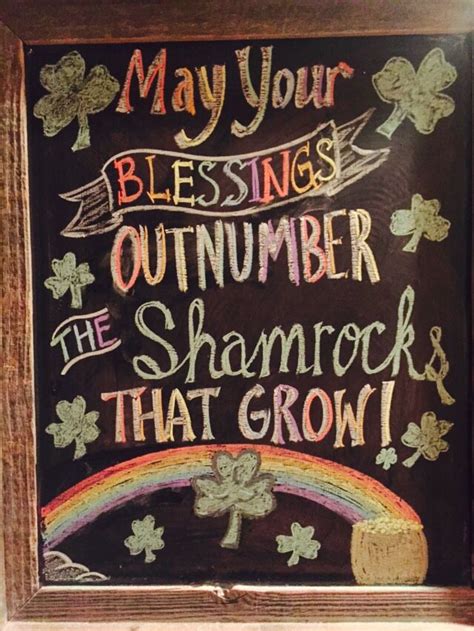 May Your
BLESSINGS
OUTNUMBER
THE Shamrocks
THAT GROW!